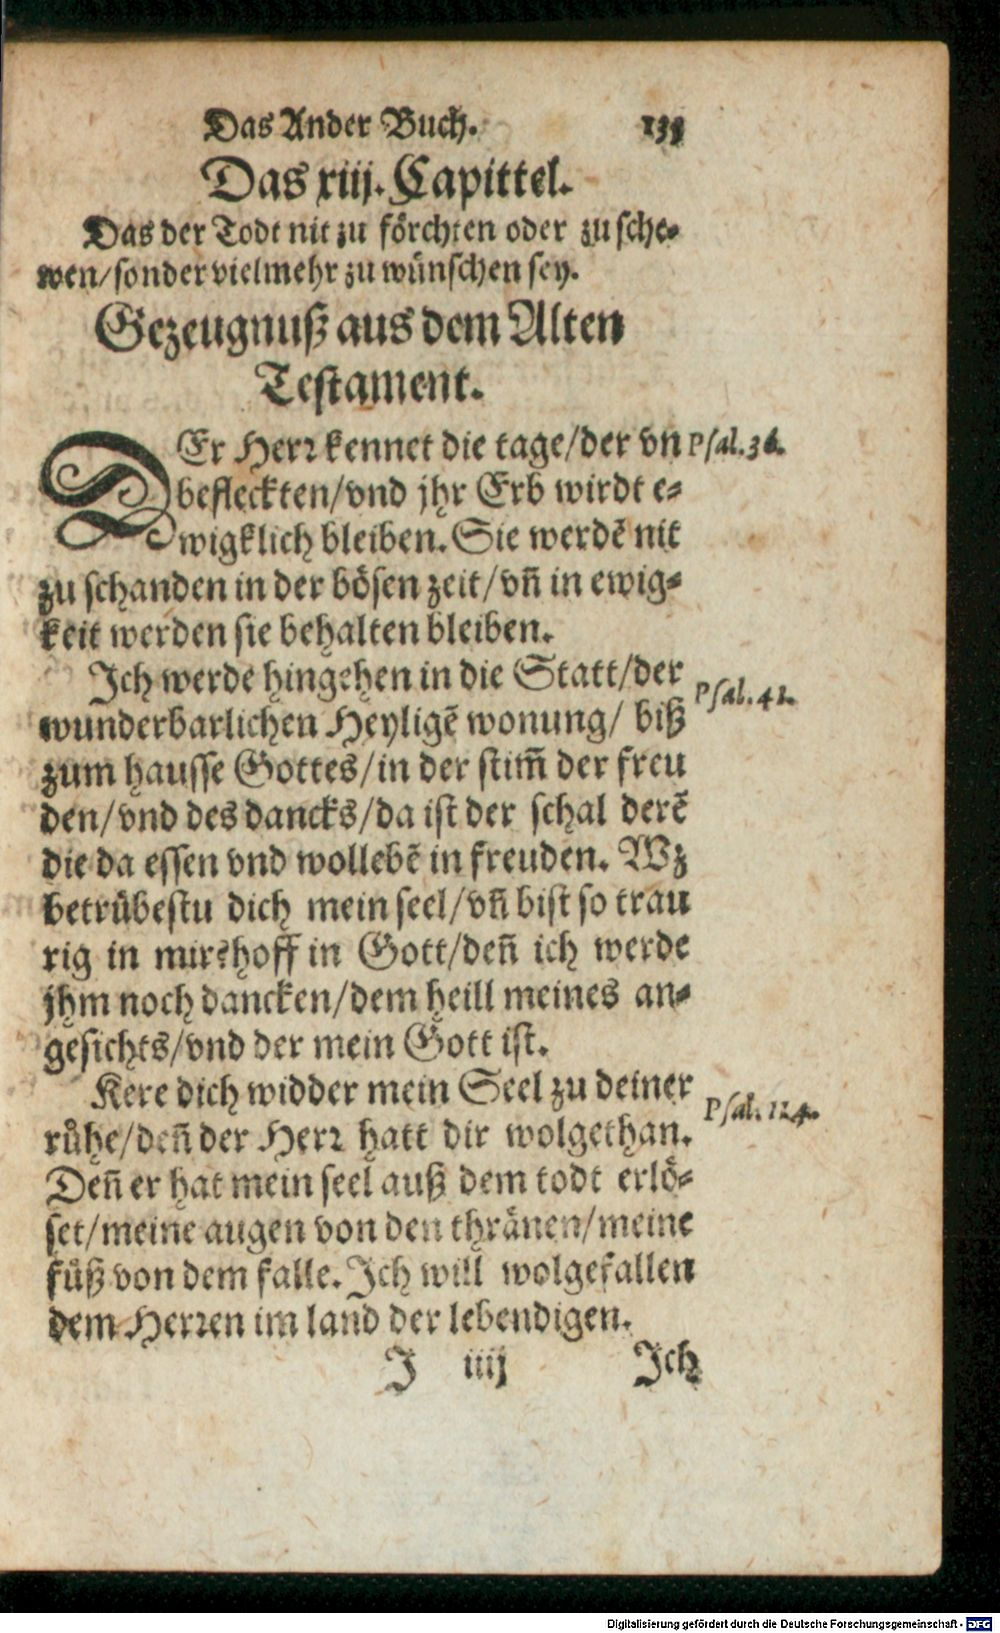 Das Ander Buch. 135
Das xiij. Capittel.
Das der Todt nit zu förchten oder zu sche-
wen/sonder vielmehr zu wünschen sey.
Gezeugnuß aus dem Alten
Testament.
DEr Herr kennet die tage/der vn Psal.36.
befleckten/vnd jhr Erb wirdt e-
wigklich bleiben. Sie werdē nit
zu schanden in der bösen zeit/vñ in ewig-
keit werden sie behalten bleiben.
Ich werde hingehen in die Statt/der Psal.41.
wunderbarlichen Heyligē wonung/ biß
zum hausse Gottes/in der stim̄ der freu
den/vnd des dancks/da ist der schal derē
die da essen vnd wollebē in freuden. Wz
betrübestu dich mein seel/vñ bist so trau
rig in mir? hoff in Gott/deñ ich werde
jhm noch dancken/dem heill meines an-
gesichts/vnd der mein Gott ist.
Kere dich widder mein Seel zu deiner Psal.114.
růhe/deñ der Herr hatt dir wolgethan.
Deñ er hat mein seel auß dem todt erlö-
set/meine augen von den thränen/meine
füß von dem falle. Ich will wolgefallen
dem Herren im land der lebendigen.
J iiij Ich
Digitalisierung gefördert durch die Deutsche Forschungsgemeinschaft - DFG